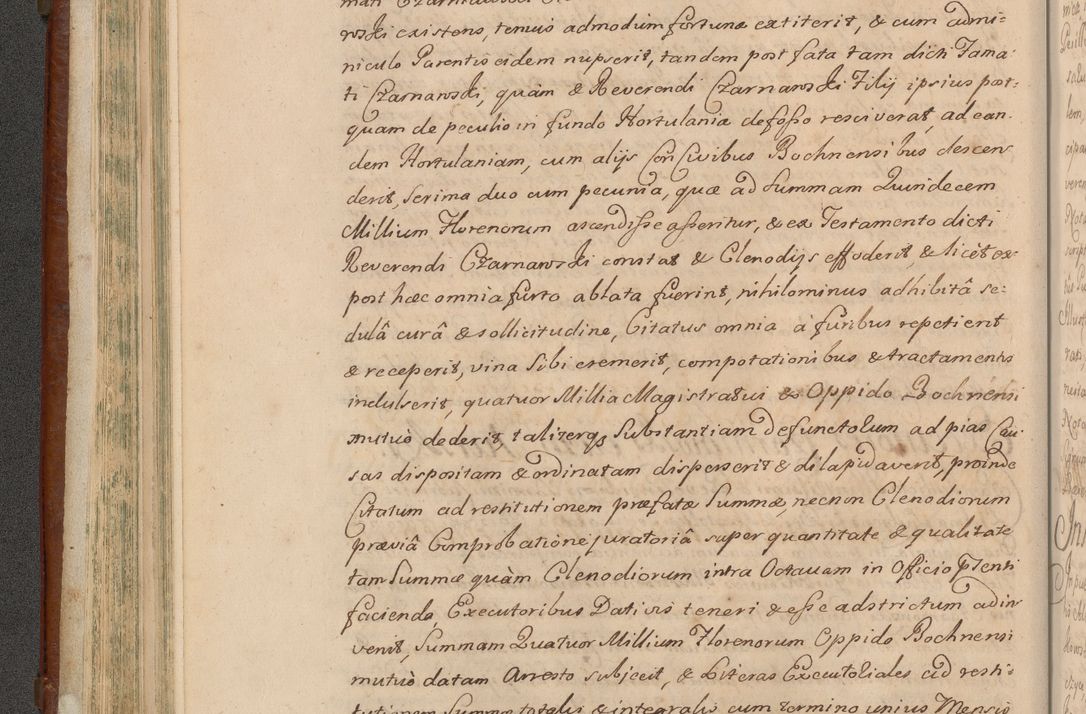 wski existens, tenuis admodum fortunæ extiterit, & cum admi=
niculo Parentis eidem nupserit, tandem post fata tam dicti Fama-
ti Czarnawski, quàm & Reverendi Czarnawski Filij ipsius post=
quam de peculio in fundo Hortulaniæ defosso resciverat, ad ean-
dem Hortulaniam, cum alijs Con Civibus Bochnensibus descen
derit, serima duo cum pecunia, quæ ad Summam Quindecem
Millium Florenorum ascendisse asseritur, & ex Testamento dicti
Reverendi Czarnawski constat & Clenodijs effoderit, & licèt ex
post hæc omnia furto ablata fuerint, nihilominus adhibitâ se=
dulâ curâ & sollicitudine, Citatus omnia à furibus repetierit
& receperit, vina sibi exemerit, compotationibus & tractamentis
indulserit, quatuor Millia Magistratui & Oppido Bochnensi
mutuò dederit, taliterqs Substantiam defunctorum ad pias Cau
sas dispositam & ordinatam disperserit & dilapidaverit, proinde
Citatum ad restitutionem præfatæ Summæ, necnon Clenodiorum
præviâ Comprobatione juratoriâ super quantitate & qualitate
tam Summæ quàm Clenodiorum intra Octavam in Officio Pſenti
facienda, Executoribus Dativis teneri & esse adstrictum adin
venit, Summam Quatuor Millium Florenorum Oppido Bochnensi
mutuò datam Arresto subjecit, & Literas Executoriales ad resti=
tutionem Summæ totalis & integralis cum termino unius Mensis